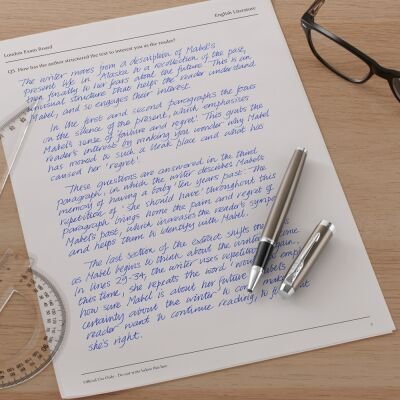 London Exam Board
English Literature
Q5. How has the author structured the text to interest you as the reader?
The writer moves from a description of Mabel's
present life in 'Alaska' to a recollection of the past,
then finally to her fears about the future. This is an
unusual structure that helps the reader understand
Mabel, and so engages their interest.
In the first and second paragraphs the focus
is on the silence of the present, which emphasises
Mabel's sense of failure and regret. This grabs the
reader's interest by making you wonder why Mabel
has moved to such a bleak place and what has
caused her 'regret'.
These questions are answered in the third
paragraph, in which the writer describes Mabel's
memory of having a baby 'ten years past'. The
repetition of 'She should have' throughout this
paragraph brings home the pain and regret of
Mabel's past, which increases the reader's sympa
and helps them to identify with Mabel.
The last section of the extract shifts
as Mabel begins to think about the winter
In lines 29-34, the writer uses repetition again,
this time, she repeats the word
how sure Mabel is about her future
certainty about the winter to come makes
reader want to continue reading, to find out
she's right.